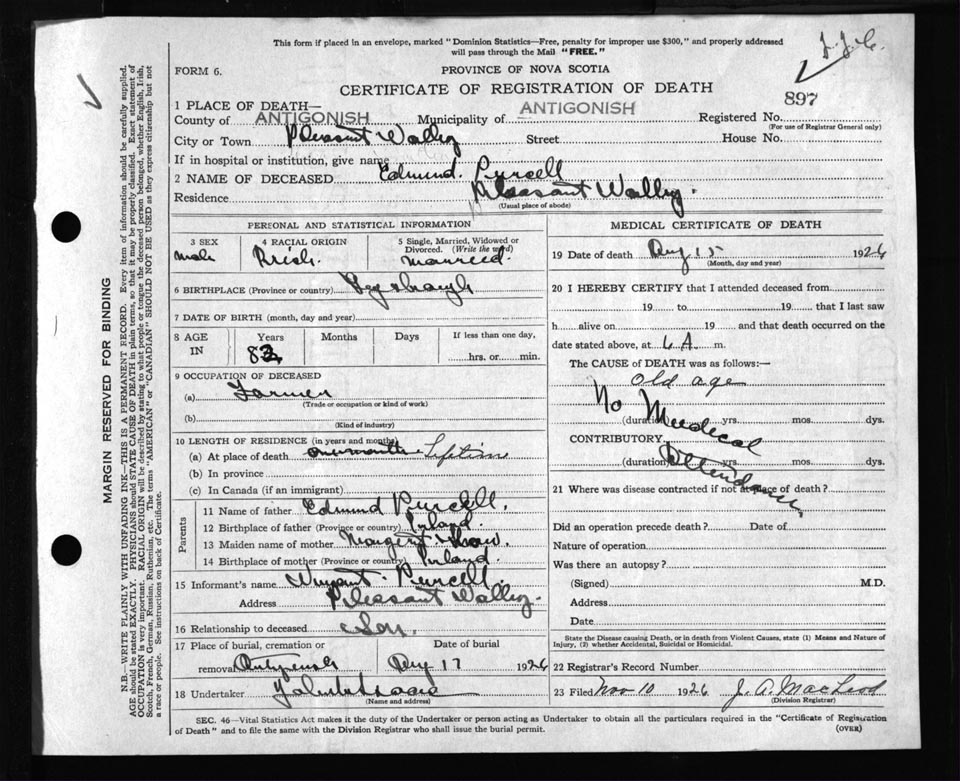 This form if placed in an envelope, marked "Dominion Statistics—Free, penalty for improper use $300," and properly addressed
will pass through the Mail "FREE."
FORM 6.
PROVINCE OF NOVA SCOTIA
CERTIFICATE OF REGISTRATION OF DEATH
897
1 PLACE OF DEATH—
County of ANTIGONISH Municipality of ANTIGONISH Registered No.
(For use of Registrar General only)
City or Town Pleasant Valley Street House No.
If in hospital or institution, give name
2 NAME OF DECEASED Edmund Purcell
Residence Pleasant Valley
(Usual place of abode)
PERSONAL AND STATISTICAL INFORMATION
3 SEX 4 RACIAL ORIGIN 5 Single, Married, Widowed or
Divorced. (Write the word)
Male Irish married
6 BIRTHPLACE (Province or country)
7 DATE OF BIRTH (month, day and year)
8 AGE IN Years Months Days If less than one day,
hrs. or min.
9 OCCUPATION OF DECEASED
(a) Farmer
(Trade or occupation or kind of work)
(b)
(Kind of industry)
10 LENGTH OF RESIDENCE (in years and months)
(a) At place of death
(b) In province
(c) In Canada (if an immigrant)
Parents
11 Name of father Edmund Purcell.
12 Birthplace of father (Province or country)
13 Maiden name of mother
14 Birthplace of mother (Province or country)
15 Informant's name Purcell.
Address Pleasant Valley.
16 Relationship to deceased Son
17 Place of burial, cremation or Date of burial
removal 17 1926
18 Undertaker
(Name and address)
MEDICAL CERTIFICATE OF DEATH
19 Date of death 15 1926
(Month, day and year)
20 I HEREBY CERTIFY that I attended deceased from
19 to 19 that I last saw
h alive on 19 and that death occurred on the
date stated above, at 6 A. m.
The CAUSE OF DEATH was as follows:—
old age
No Medical
(duration) yrs. mos. dys.
CONTRIBUTORY
(duration) yrs. mos. dys.
21 Where was disease contracted if not at place of death?
Did an operation precede death? Date of
Nature of operation
Was there an autopsy?
(Signed) M.D.
Address
Date
State the Disease causing Death, or in death from Violent Causes, state (1) Means and Nature of
Injury, (2) whether Accidental, Suicidal or Homicidal.
22 Registrar's Record Number
23 Filed Nov 10 1926 J. A. MacLeod
(Division Registrar)
SEC. 46—Vital Statistics Act makes it the duty of the Undertaker or person acting as Undertaker to obtain all the particulars required in the "Certificate of Registration
of Death" and to file the same with the Division Registrar who shall issue the burial permit.
(OVER)
MARGIN RESERVED FOR BINDING
N.B.—WRITE PLAINLY WITH UNFADING INK—THIS IS A PERMANENT RECORD. Every item of information should be carefully supplied.
AGE should be stated EXACTLY. PHYSICIANS should STATE CAUSE OF DEATH in plain terms, so that it may be properly classified. Exact statement of
OCCUPATION is very important. RACIAL ORIGIN will be described by stating to what people or tongue the deceased person belonged, whether English, Irish,
Scotch, French, German, Russian, Ruthenian, etc. The terms "AMERICAN" or "CANADIAN" SHOULD NOT BE USED as they express citizenship but not
a race or people. See instructions on back of Certificate.